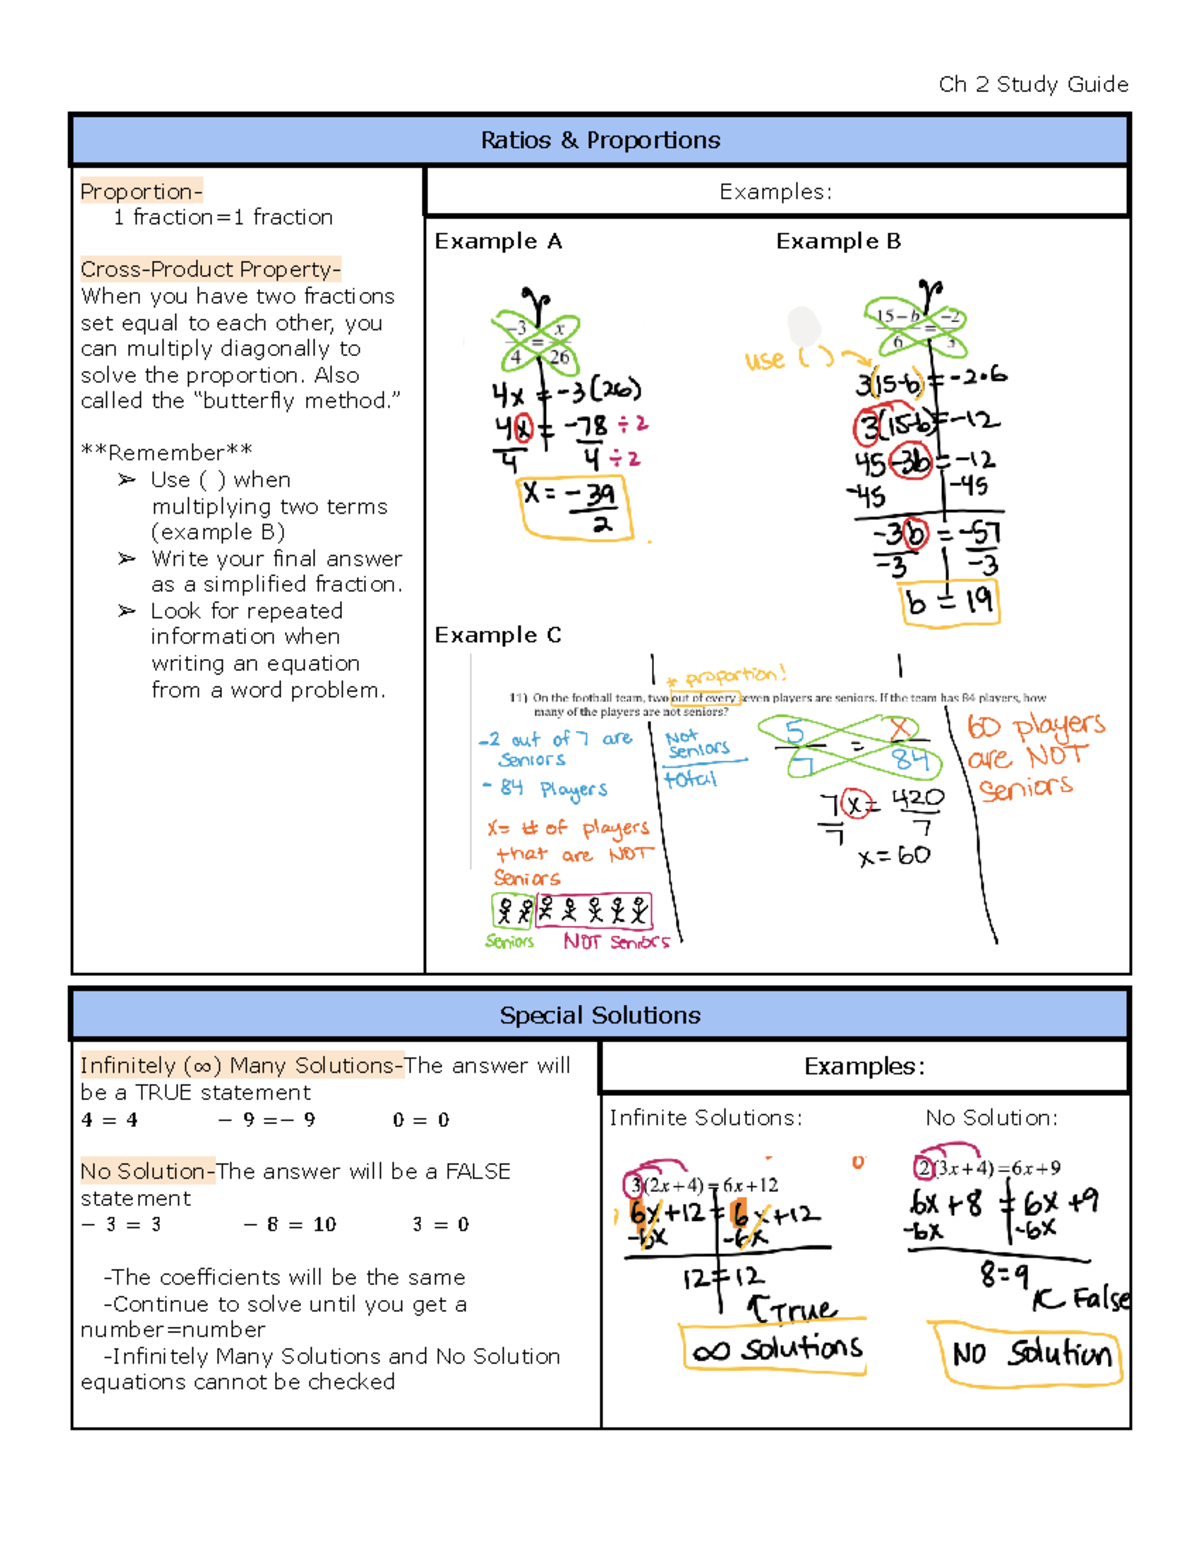 Ch 2 Study Guide
Ratios & Proportions
Proportion-
1 fraction=1 fraction
Cross-Product Property-
When you have two fractions
set equal to each other, you
can multiply diagonally to
solve the proportion. Also
called the “butterfly method.”
**Remember**
➢ Use ( ) when
multiplying two terms
(example B)
➢ Write your final answer
as a simplified fraction.
➢ Look for repeated
information when
writing an equation
from a word problem.
Examples:
Example A
-3/4 = x/26
4x = -3(26)
4x/4 = -78/4 ÷2 ÷2
x = -39/2
Example B
15-b/6 = -2/3
use ( )
3(15-b) = -2·6
3(15-b) = -12
45-3b = -12
-45 -45
-3b/-3 = -57/-3
b = 19
Example C
* proportion!
11) On the football team, two out of every seven players are seniors. If the team has 84 players, how
many of the players are not seniors?
-2 out of 7 are
seniors
- 84 Players
x= # of players
that are NOT
Seniors
Seniors NOT seniors
Not
seniors
total
5/7 = x/84
7x/7 = 420/7
x=60
60 players
are NOT
seniors
Special Solutions
Infinitely (∞) Many Solutions-The answer will
be a TRUE statement
4 = 4 − 9 =− 9 0 = 0
No Solution-The answer will be a FALSE
statement
− 3 = 3 − 8 = 10 3 = 0
-The coefficients will be the same
-Continue to solve until you get a
number=number
-Infinitely Many Solutions and No Solution
equations cannot be checked
Examples:
Infinite Solutions:
3(2x+4)=6x+12
6x+12 = 6x+12
-6x -6x
12=12
True
∞ solutions
No Solution:
2(3x+4)=6x+9
6x+8 = 6x+9
-6x -6x
8=9
False
No Solution